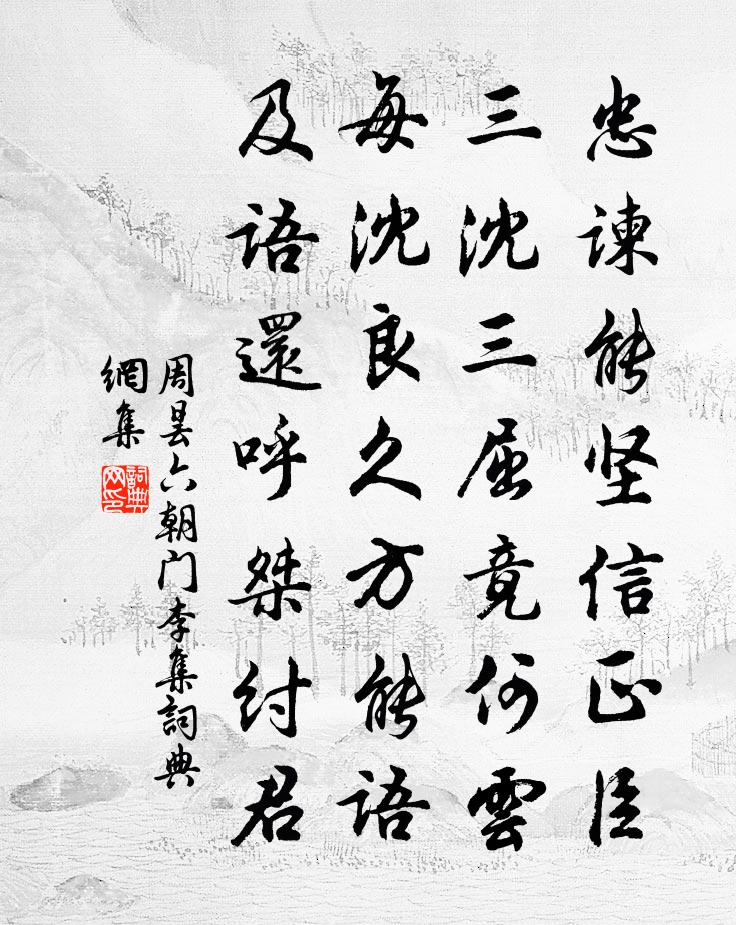 忠谏能坚信正臣
三沈三屈竟何雲
每沈良久方能语
及语還呼桀纣君
周昙六朝门李集詞典
網集
詞典
网印